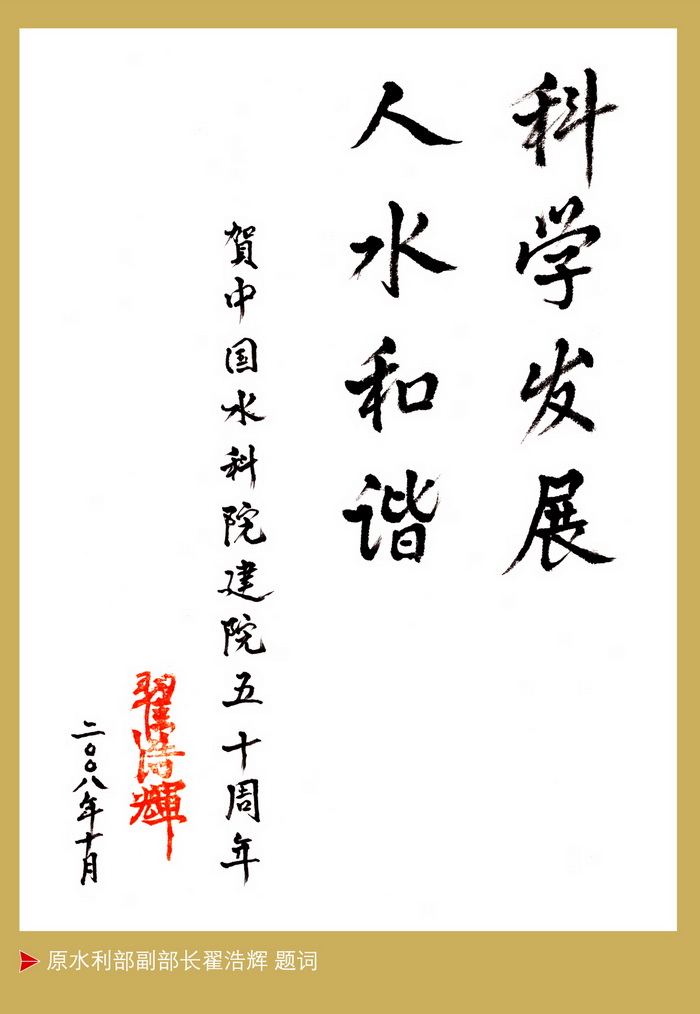 科学发展
人水和谐
贺中国水科院建院五十周年
翟浩輝
二〇〇八年十月
原水利部副部长翟浩辉 题词